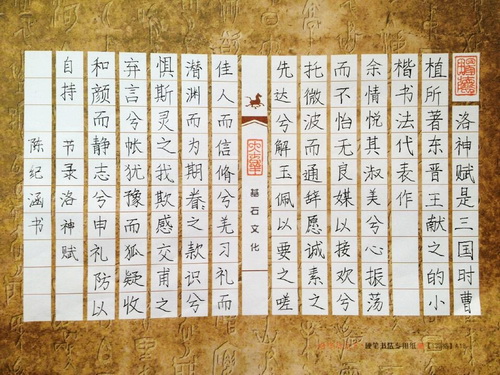 洛神赋是三国时曹
植所著东晋王献之的小
楷书法代表作
余情悦其淑美兮心振荡
而不怡无良媒以接欢兮
托微波而通辞愿诚素之
先达兮解玉佩以要之嗟
基石文化
佳人而信脩兮羌习礼而
潜渊而为期眷之款识兮
惧斯灵之我欺感交甫之
弃言兮怅犹豫而狐疑收
和颜而静志兮申礼防以
自持 书录洛神赋
陈纪涵书
硬笔书法专用纸